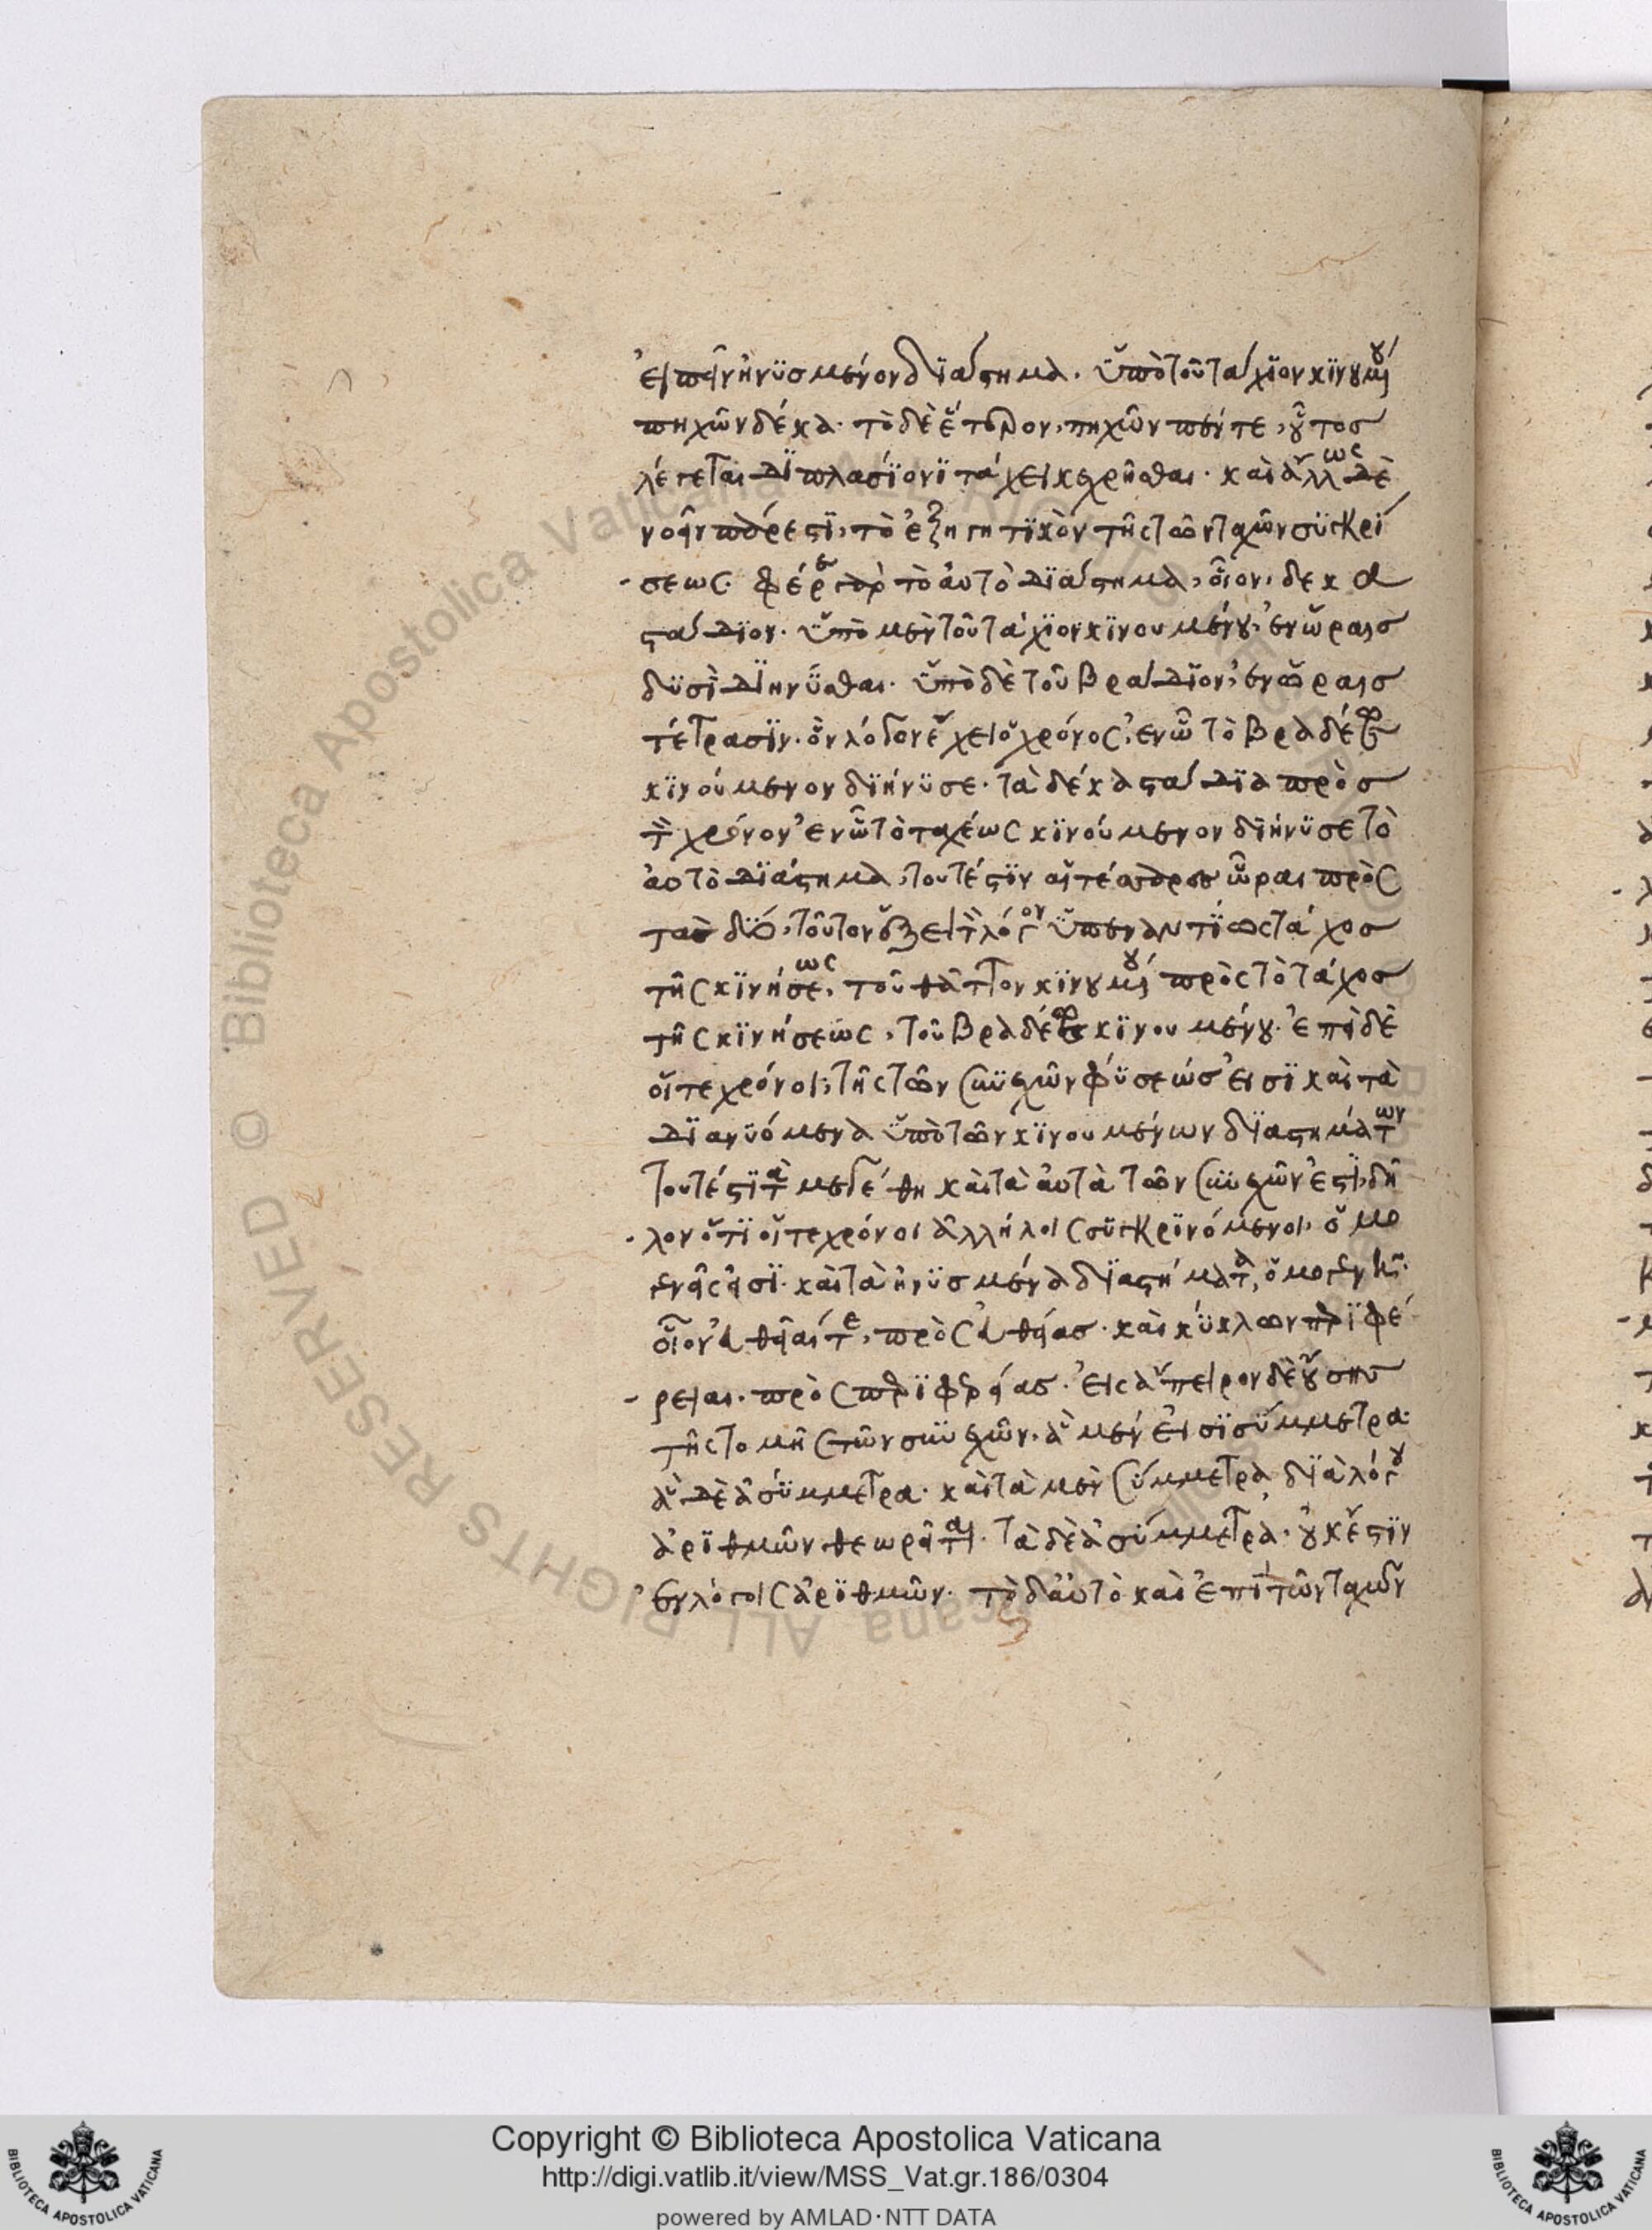 εἰπεῖν ἠνυσμένον διάστημα. ὑπὸ τοῦ τάχιον κινουμένου
πηχῶν δέκα. τὸ δὲ ἕτερον, πηχῶν πέντε, οὗτος
λέγεται διπλασίονι τάχει κεχρῆσθαι. καὶ ἄλλως δὲ
νοεῖν πάρεστι, τὸ ἐξηγητικὸν τῆς τῶν ταχῶν συγκρί
σεως. φέρε γὰρ τὸ αὐτὸ διάστημα, οἷον, δεκα
στάδιον. ὑπὸ μὲν τοῦ τάχιον κινουμένου, ἐν ὥραις
δυσὶ διηνύσθαι. ὑπὸ δὲ τοῦ βράδιον, ἐν ὥραις
τέτρασιν. ὃν λόγον ἔχει ὁ χρόνος, ἐν ᾧ τὸ βραδέως
κινούμενον διήνυσε. τὰ δέκα στάδια πρὸς
τὸν χρόνον ἐν ᾧ τὸ ταχέως κινούμενον διήνυσε τὸ
αὐτὸ διάστημα, τουτέστιν αἱ τέσσαρες ὧραι πρὸς
τὰς δύο, τοῦτον ἕξει τὸν λόγον ὑπεναντίως τάχος
τῆς κινήσεως, τοῦ θᾶττον κινουμένου πρὸς τὸ τάχος
τῆς κινήσεως, τοῦ βραδέως κινουμένου. ἐπεὶ δὲ
οἵ τε χρόνοι, τῆς τῶν συνεχῶν φύσεώς εἰσι καὶ τὰ
διανυόμενα ὑπὸ τῶν κινουμένων διαστημάτων
τουτέστι τὰ μεγέθη καὶ τὰ αὐτὰ τῶν συνεχῶν ἐστὶ, δῆ
λον ὅτι οἵ τε χρόνοι ἀλλήλοις συγκρινόμενοι, ὁμο
γενεῖς εἰσι. καὶ τὰ ἠνυσμένα διαστήματα, ὁμογενῆ.
οἷον εὐθεῖαί τε, πρὸς εὐθείας. καὶ κύκλων περιφέ
ρειαι. πρὸς περιφερείας. εἰς ἄπειρον δὲ οὔσης
τῆς τομῆς τῶν συνεχῶν. ἃ μέν εἰσι σύμμετρα.
ἃ δὲ ἀσύμμετρα. καὶ τὰ μὲν σύμμετρα, διὰ λόγου
ἀριθμῶν θεωρεῖται. τὰ δὲ ἀσύμμετρα. οὐκ ἔστιν
ἐν λόγοις ἀριθμῶν. τὸ δ' αὐτὸ καὶ ἐπὶ τῶν ταχῶν
Copyright © Biblioteca Apostolica Vaticana
http://digi.vatlib.it/view/MSS_Vat.gr.186/0304
powered by AMLAD·NTT DATA